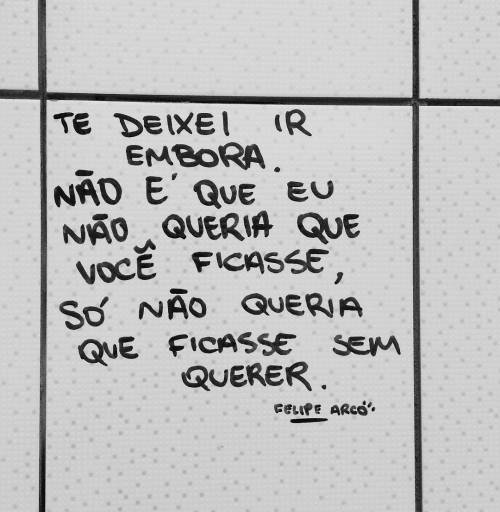 TE DEIXEI IR
EMBORA.
NÃO É QUE EU
NÃO QUERIA QUE
VOCÊ FICASSE,
SÓ NÃO QUERIA
QUE FICASSE SEM
QUERER.
FELIPE ARCO´.